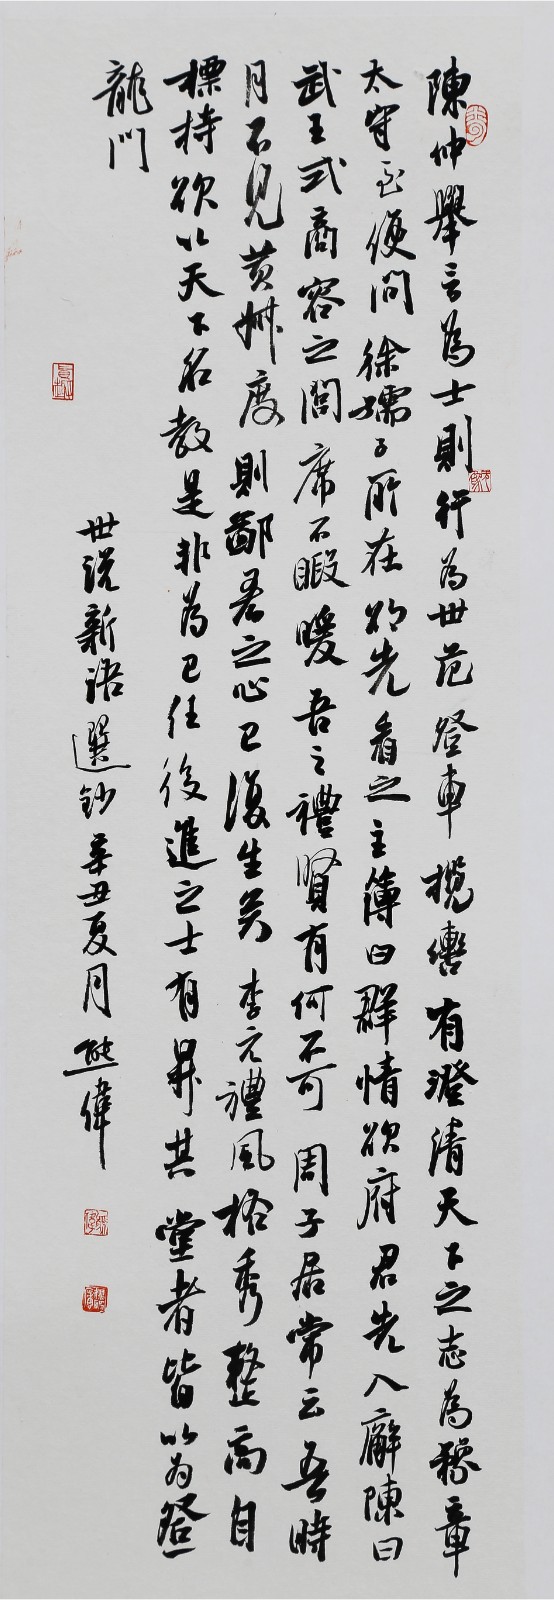 陳仲舉言為士則行為世范登車攬轡有澄清天下之志為豫章
太守至便問徐孺子所在欲先看之主薄曰群情欲府君先入廨陳曰
武王式商容之閭席不暇暖吾之禮賢有何不可周子居常云吾時
月不見黃叔度則鄙吝之心已復生矣李元禮風格秀整高自
標持欲以天下名教是非為己任後進之士有昇其堂者皆以為登
龍門
世說新語選鈔辛丑夏月熊偉